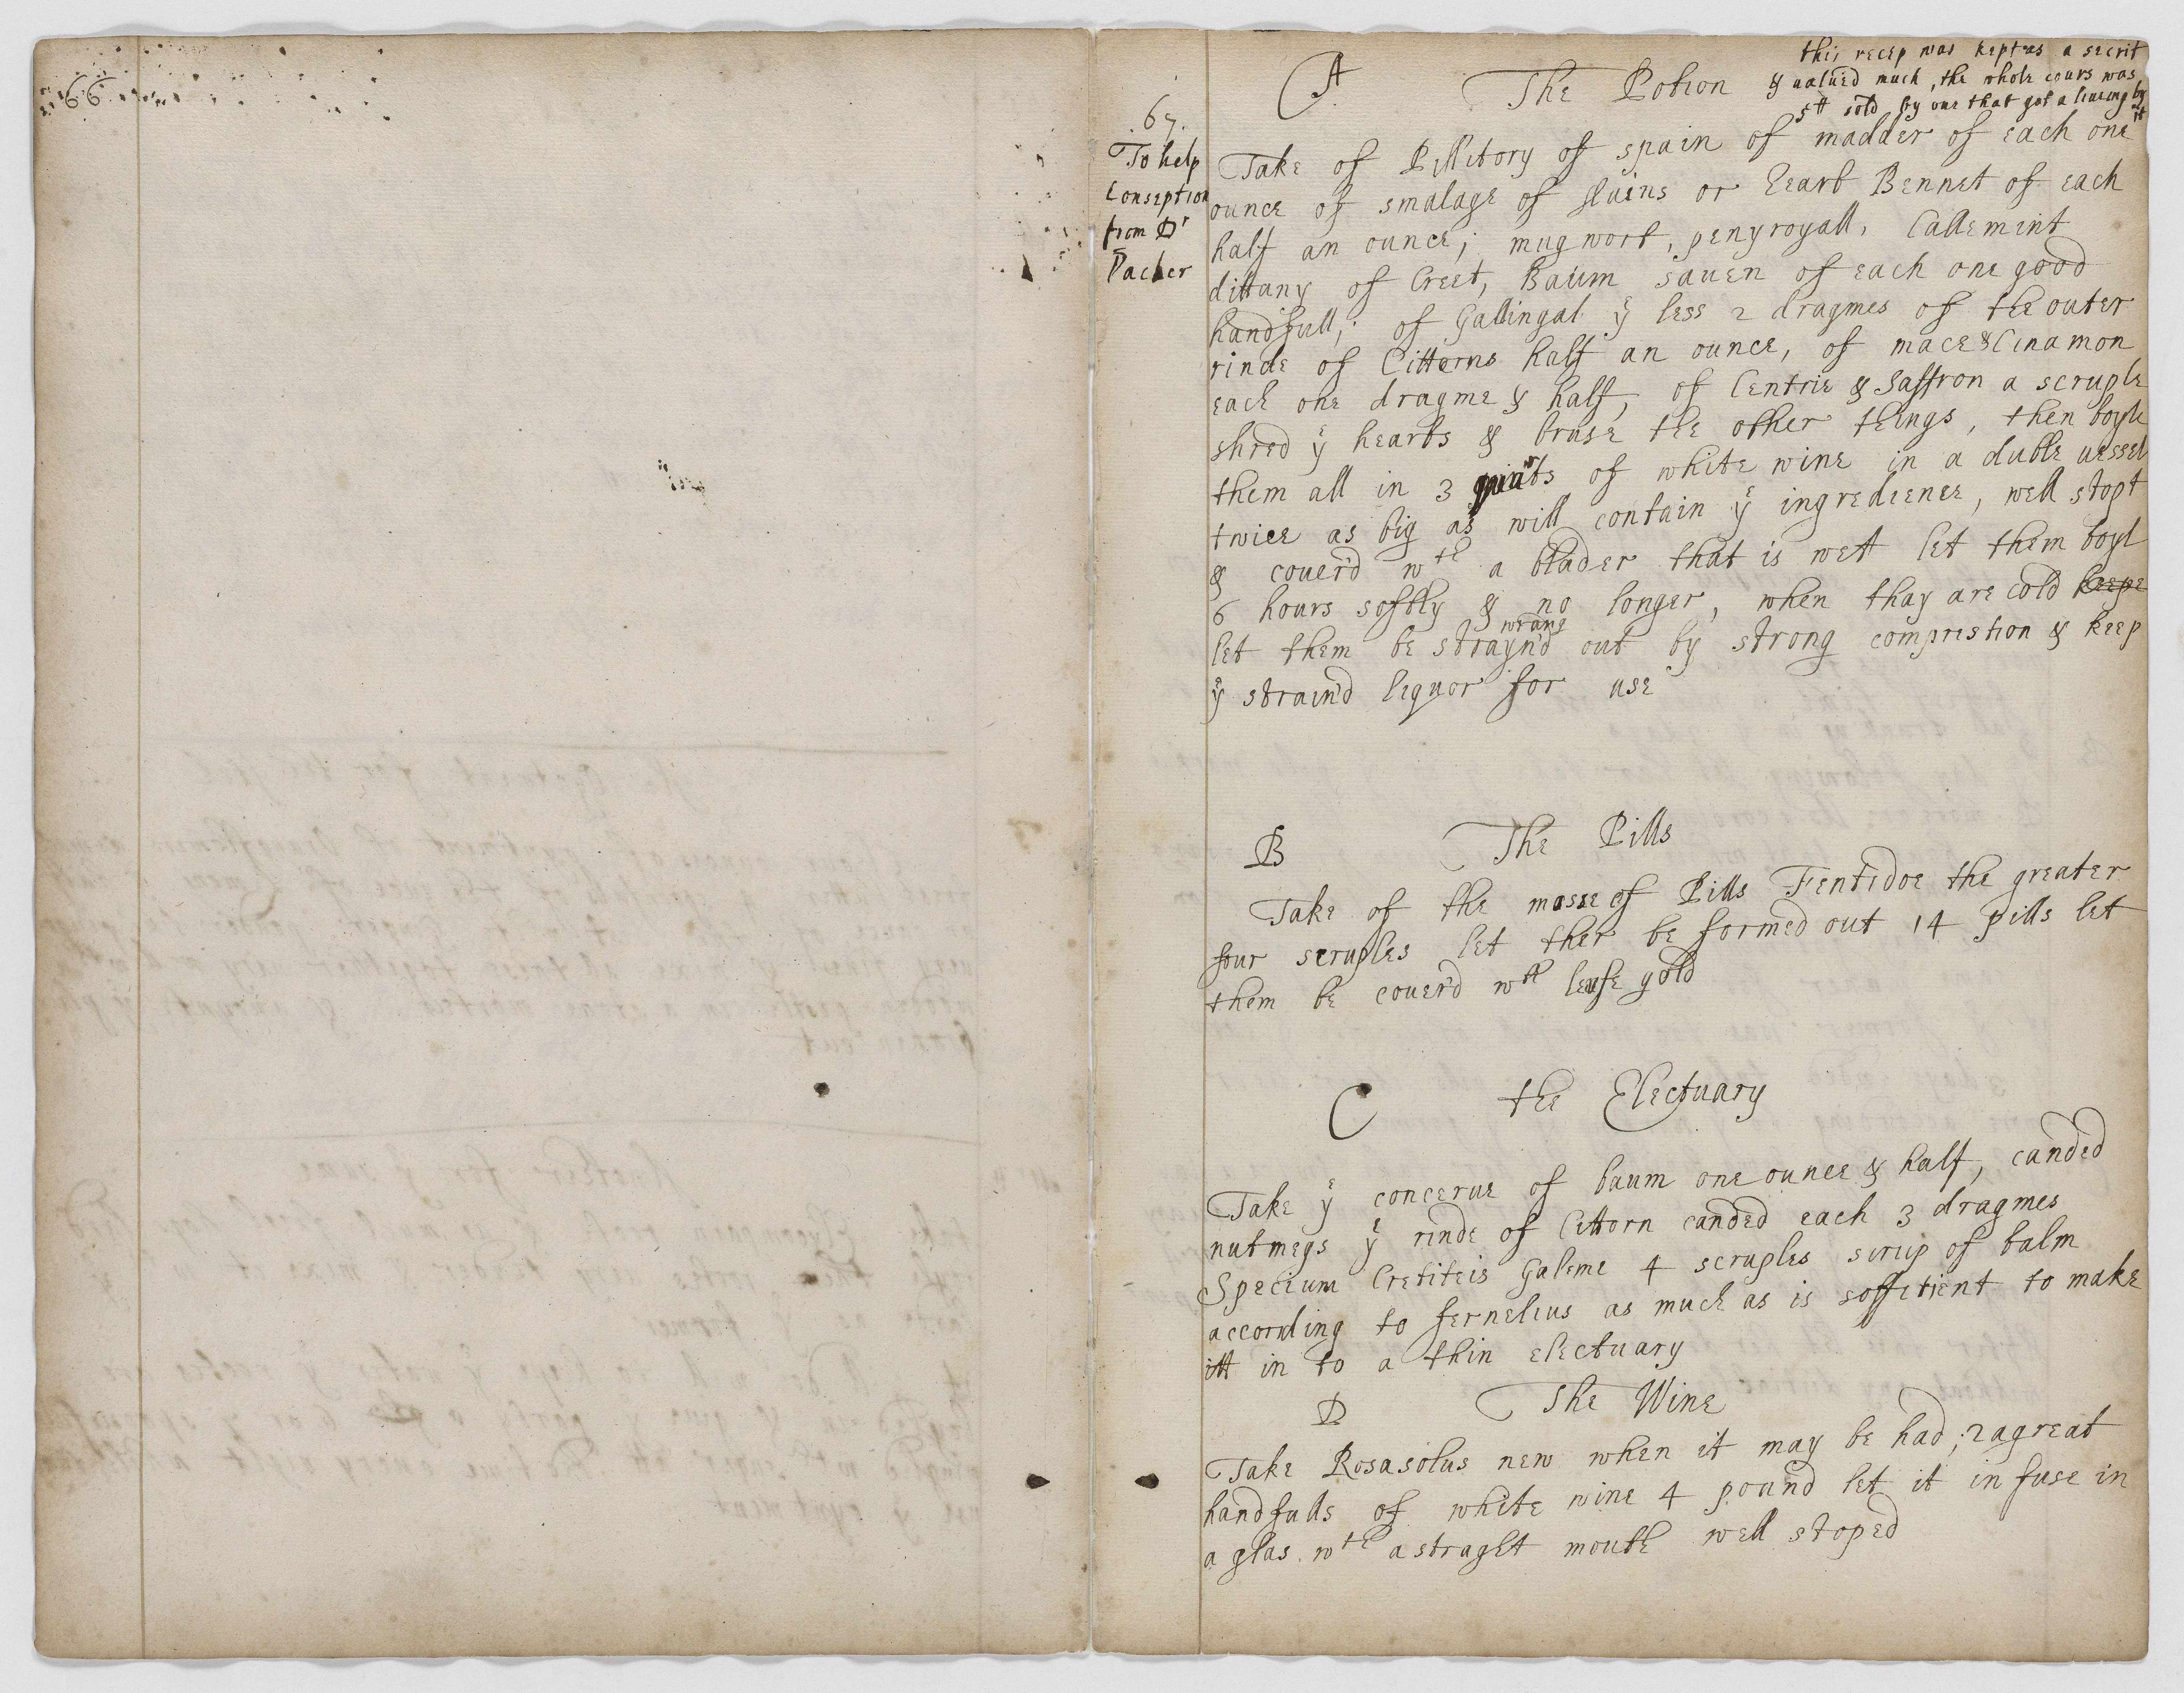 66
67.
To help
Conseption
from Dr
Packer
A The Potion
this recep was kept as a secrit
& ualued much, the whole cours was
5ll sold by one that got a liueing by it
Take of Pillitory of spain of madder of each one
ounce of smalage of or hearb Bennet of each
half an ounce; mugwort, penyroyall, Callemint
dittany of Creet, Baum sauen of each one good
handfull; of Gallingal ye less 2 dragmes of the outer
rinde of Citterns half an ounce, of mace & Cinamon
each one dragme & half, of Centrie & Saffron a scruple
shred ye hearbs & bruse the other things, then boyle
them all in 3 of white wine in a duble uessel
twice as big as will contain ye ingredience, well stopt
& couerd wth a blader that is wett let them boyl
6 hours softly & no longer, when thay are cold keepe
let them be straynd wrung out by strong comprestion & keep
ye straind liquor for use
B The Pills
Take of the masse of Pills Fentidoe the greater
four scruples let ther be formed out 14 pills let
them be couerd wth leafe gold
C the Electuary
Take ye concerue of baum one ounce & half, canded
nutmegs ye rinde of Cittorn canded each 3 dragmes
Specium Cretiteis Galeme 4 scruples sirup of balm
according to fernelius as much as is soffitient to make
itt in to a thin electuary
D The Wine
Take Rosasolus new when it may be had, 2 a great
handfulls of white wine 4 pound let it in fuse in
a glas wth a straght mouth well stoped